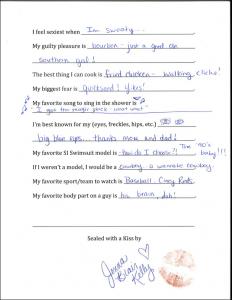 I feel sexiest when I'm sweaty...
My guilty pleasure is bourbon - just a good ole
southern gal!
The best thing I can cook is fried chicken - walking cliche!
My biggest fear is quicksand! Yikes!
My favorite song to sing in the shower is
"I got the magic stick - what what"
I'm best known for my (eyes, freckles, hips, etc.)
big blue eyes... thanks mom and dad!
My favorite SI Swimsuit model is how do I choose?! The 90's
baby!!!
If I weren't a model, I would be a cowboy, a wannabe
My favorite sport/team to watch is Baseball. Cincy Reds.
My favorite body part on a guy is his brain, duh!
Sealed with a Kiss by
Jenna
Kelly